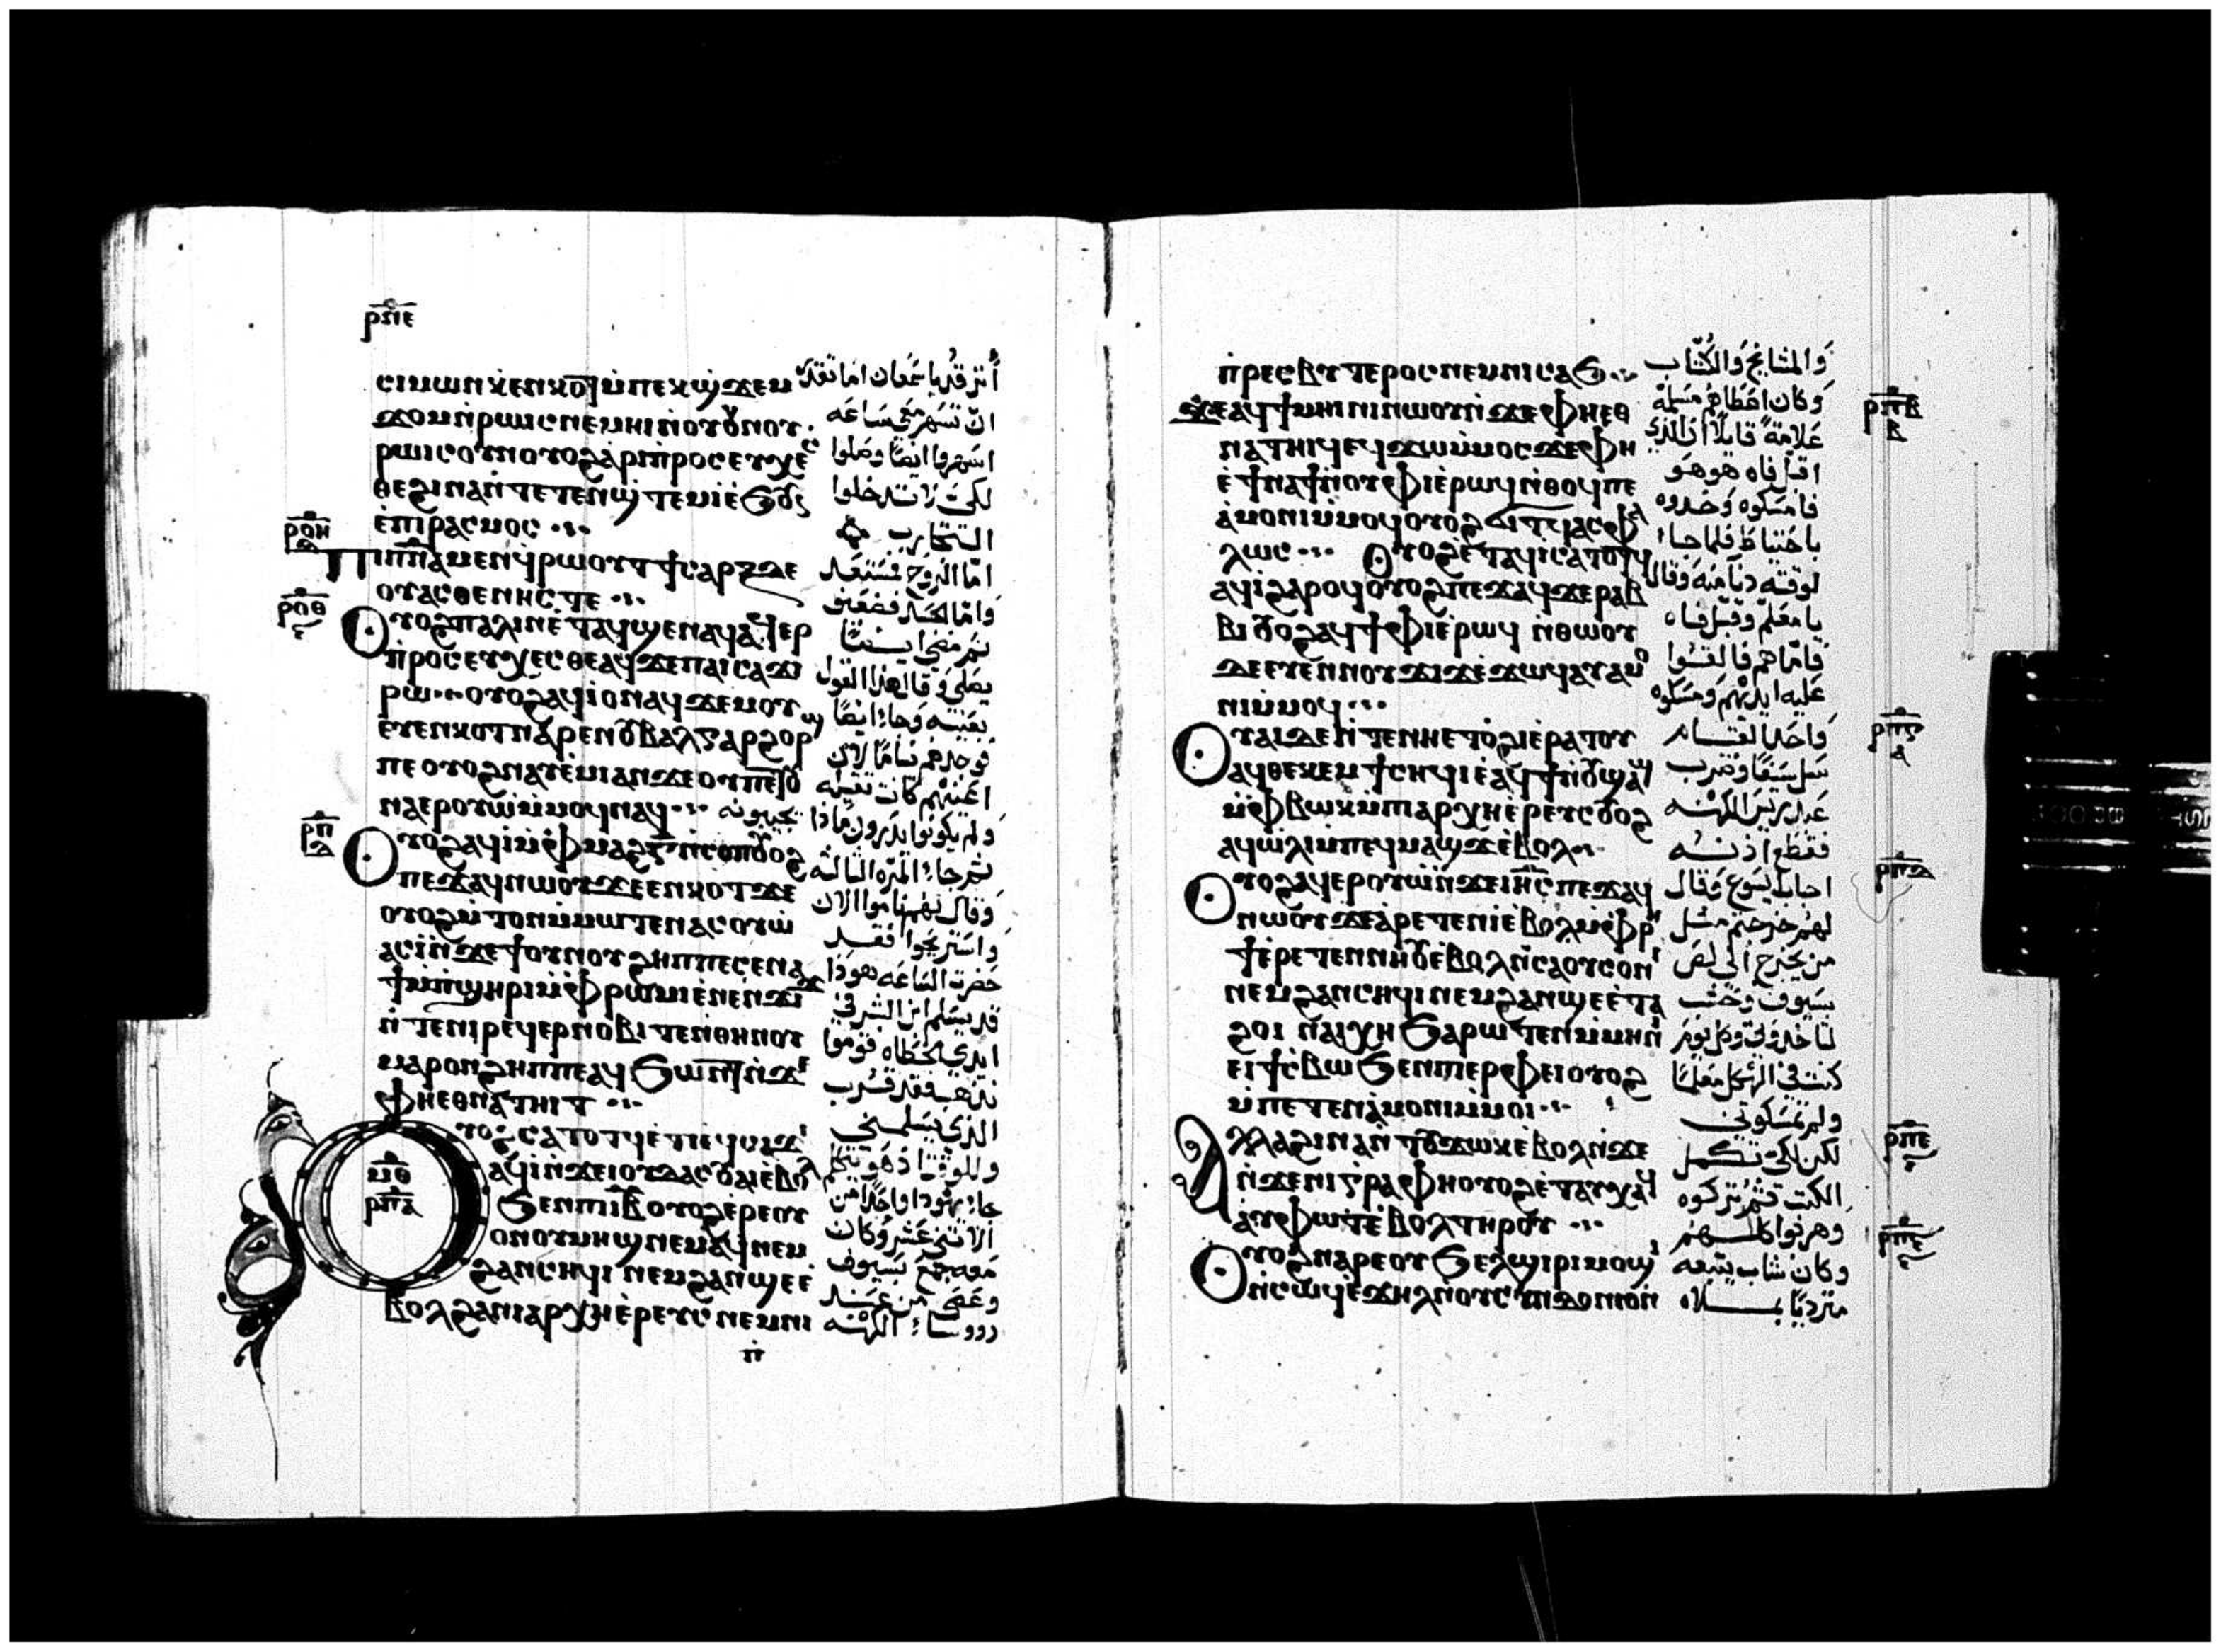 ⲣⲡⲉ
ⲥⲓⲙⲱⲛ ⲭⲉⲛⲕⲟⲧ ⲙⲡⲉⲕϣ ϫⲉⲙ
ϫⲟⲙ ⲛⲣⲱⲓⲥ ⲛⲉⲙⲏⲓ ⲛⲟⲩϭⲛⲟⲩ
ⲣⲱⲓⲥ ⲟⲩⲛ ⲟⲩⲟϩ ⲁⲣⲓⲡⲣⲟⲥⲉⲩⲭⲉⲥ
ⲑⲉ ϩⲓⲛⲁ ⲛⲧⲉⲧⲉⲛϣⲧⲉⲙⲓ ⲉϧⲟⲩⲛ
ⲉⲡⲓⲣⲁⲥⲙⲟⲥ
ⲣⲟⲏ
ⲡⲓⲡⲛⲁ ⲙⲉⲛ ϥⲣⲱⲟⲩⲧ ϯⲥⲁⲣⲝ ⲇⲉ
ⲟⲩⲁⲥⲑⲉⲛⲏⲥ ⲧⲉ
ⲣⲟⲑ
ⲟⲩⲟϩ ⲡⲁⲗⲓⲛ ⲉⲧⲁϥϣⲉⲛⲁϥ ⲁϥⲉⲣ
ⲡⲣⲟⲥⲉⲩⲭⲉⲥⲑⲉ ⲁϥϫⲉ ⲡⲁⲓⲥⲁϫⲓ
ⲣⲱ ⲟⲩⲟϩ ⲁϥⲓ ⲟⲛ ⲁϥϫⲉⲙⲟⲩ
ⲉⲩⲉⲛⲕⲟⲧ ⲛⲁⲣⲉ ⲛⲟⲩⲃⲁⲗ ⲅⲁⲣ ϩⲟⲣϣ
ⲡⲉ ⲟⲩⲟϩ ⲛⲁⲩⲉⲙⲓ ⲁⲛ ϫⲉ ⲟⲩ ⲡⲉⲧⲟⲩ
ⲛⲁⲉⲣⲟⲩⲱ ⲙⲙⲟϥ ⲛⲁϥ
ⲣⲡ
ⲟⲩⲟϩ ⲁϥⲓ ⲙⲫⲙⲁϩ ⲅ ⲛⲥⲟⲡ ⲟⲩⲟϩ
ⲡⲉϫⲁϥ ⲛⲱⲟⲩ ϫⲉ ⲉⲛⲕⲟⲧ ϫⲉ
ⲟⲩⲟϩ ⲙⲧⲟⲛ ⲙⲙⲱⲧⲉⲛ ⲁⲥⲟⲩⲱ
ⲁⲥⲓ ⲛϫⲉ ϯⲟⲩⲛⲟⲩ ϩⲏⲡⲡⲉ ⲥⲉⲛⲁ
ϯ ⲙⲡϣⲏⲣⲓ ⲙⲫⲣⲱⲙⲓ ⲉⲛⲉⲛϫⲓϫ
ⲛⲧⲉ ⲛⲓⲣⲉϥⲉⲣⲛⲟⲃⲓ ⲧⲉⲛⲑⲏⲛⲟⲩ
ⲙⲁⲣⲟⲛ ϩⲏⲡⲡⲉ ⲁϥϧⲱⲛⲧ ⲛϫⲉ
ⲫⲏ ⲉⲑⲛⲁⲧⲏⲓⲧ
ⲙⲑ
ⲣⲡⲁ
ⲟⲩⲟϩ ⲥⲁⲧⲟⲧϥ ⲉⲧⲓ ⲉϥⲥⲁϫⲓ
ⲁϥⲓ ⲛϫⲉ ⲓⲟⲩⲇⲁⲥ ⲟⲩⲁⲓ ⲉⲃⲟⲗ
ϧⲉⲛ ⲡⲓⲓⲃ ⲟⲩⲟϩ ⲉⲣⲉ ⲟⲩ
ⲟⲛ ⲟⲩⲙⲏϣ ⲛⲉⲙⲁϥ ⲛⲉⲙ
ϩⲁⲛⲥⲏϥⲓ ⲛⲉⲙ ϩⲁⲛϣⲉ ⲉ
ⲃⲟⲗ ϩⲁ ⲛⲓⲁⲣⲭⲏⲉⲣⲉⲩⲥ ⲛⲉⲙ ⲛⲓ
ⲡ
أترقد يا سمعان اما تقدر
ان تسهر معي ساعه
اسهروا ايضا وصلوا
لكي لا تدخلوا
التجارب
اما الروح فمستعد
واما الجسد فضعيف
ثم مضى ايضا
يصلي وقال هذا القول
بعينه وجاء ايضا
فوجدهم نياما لان
اعينهم كانت ثقيله
ولم يكونوا يدرون ماذا يجيبونه
ثم جاء المره الثالثه
وقال لهم ناموا الان
واستريحوا فقد
حضرت الساعه هوذا
قد يسلم ابن البشر في
ايدي الخطاه قوموا
نذهب فقد قرب
الذي يسلمني
وللوقت اذ هو يتكلم
جاء يهودا واحدا من
الاثني عشر وكان
معه جمع بسيوف
وعصي من عند
رووساء الكهنه
ⲡⲣⲉⲥⲃⲩⲧⲉⲣⲟⲥ ⲛⲉⲙ ⲛⲓⲥⲁϧ
ⲛⲉ ⲁϥϯⲙⲏⲓⲛⲓ ⲛⲱⲟⲩ ⲛϫⲉ ⲫⲏ ⲉⲑ
ⲛⲁⲧⲏⲓϥ ⲉϥϫⲱ ⲙⲙⲟⲥ ϫⲉ ⲫⲏ
ⲉϯⲛⲁϯ ⲛⲟⲩⲫⲓ ⲉⲣⲱϥ ⲛⲑⲟϥ ⲡⲉ
ⲁⲙⲟⲛⲓ ⲙⲙⲟϥ ⲟⲩⲟϩ ϭⲓⲧϥ ⲁⲥⲫⲁ
ⲗⲱⲥ ⲟⲩⲟϩ ⲉⲧⲁϥⲓ ⲥⲁⲧⲟⲧϥ
ⲁϥⲓ ϩⲁⲣⲟϥ ⲟⲩⲟϩ ⲡⲉϫⲁϥ ϫⲉ ⲣⲁⲃ
ⲃⲓ ⲟⲩⲟϩ ⲁϥϯⲫⲓ ⲉⲣⲱϥ ⲛⲑⲱⲟⲩ
ⲇⲉ ⲉⲩⲉⲛ ⲛⲟⲩϫⲓϫ ⲉϫⲱϥ ⲁⲩⲁⲙⲟ
ⲛⲓ ⲙⲙⲟϥ
ⲟⲩⲁⲓ ⲇⲉ ⲛⲧⲉ ⲛⲏ ⲉⲧⲟϩⲓ ⲉⲣⲁⲧⲟⲩ
ⲁϥⲑⲉⲕⲉⲙ ϯⲥⲏϥⲓ ⲉⲁϥϯ ⲛⲟⲩϣⲁϣ
ⲙⲫⲃⲱⲕ ⲙⲡⲁⲣⲭⲏⲉⲣⲉⲩⲥ ⲟⲩⲟϩ
ⲁϥⲱⲗⲓ ⲙⲡⲉϥⲙⲁϣϫ ⲉⲃⲟⲗ
ⲟⲩⲟϩ ⲁϥⲉⲣⲟⲩⲱ ⲛϫⲉ ⲓⲏⲥ ⲡⲉϫⲁϥ
ⲛⲱⲟⲩ ϫⲉ ⲁⲣⲉⲧⲉⲛⲓ ⲉⲃⲟⲗ ⲙⲫⲣⲏ
ϯ ⲉⲣⲉⲧⲉⲛⲛⲏⲟⲩ ⲉⲃⲟⲗ ⲛⲥⲁ ⲟⲩⲥⲟⲛⲓ
ⲛⲉⲙ ϩⲁⲛⲥⲏϥⲓ ⲛⲉⲙ ϩⲁⲛϣⲉ ⲉⲧⲁ
ϩⲟⲓ ⲛⲁⲓⲭⲏ ϧⲁⲣⲱⲧⲉⲛ ⲙⲙⲏⲛⲓ
ⲉⲓϯⲥⲃⲱ ϧⲉⲛ ⲡⲉⲣⲫⲉⲓ ⲟⲩⲟϩ
ⲙⲡⲉⲧⲉⲛⲁⲙⲟⲛⲓ ⲙⲙⲟⲓ
ⲁⲗⲗⲁ ϩⲓⲛⲁ ⲛⲧⲟⲩϫⲱⲕ ⲉⲃⲟⲗ ⲛϫⲉ
ⲛϫⲉ ⲛⲓⲅⲣⲁⲫⲏ ⲟⲩⲟϩ ⲉⲧⲁⲩⲭⲁϥ
ⲁⲩⲫⲱⲧ ⲉⲃⲟⲗ ⲧⲏⲣⲟⲩ
ⲟⲩⲟϩ ⲛⲁⲣⲉ ⲟⲩϧⲉⲗϣⲓⲣⲓ ⲙⲟϣⲓ
ⲛⲥⲱϥ ⲉϫⲏⲗ ⲛⲟⲩⲥⲓⲛⲇⲟⲛⲓⲟⲛ
والمشايخ والكتاب
وكان اعطاهم مسلمه
علامة قايلا ان الذي
اقبل فاه هو هو
فامسكوه وخذوه
باحتياط فلما جاء
لوقته دنا منه وقال
يا معلم وقبل فاه
فاما هم فالقوا
عليه ايديهم ومسكوه
واحد القيام
سل سيفا وضرب
عبد رييس الكهنه
فقطع اذنه
اجاب ايسوع وقال
لهم خرجتم مثل
من يخرج الي لص
بسيوف وخشب
لتاخذوني وكل يوم
كنت في الهيكل معلما
ولم تمسكوني
لكن لكي تكمل
الكتب فثم تركوه
وهربوا كلهم
وكان شاب يتبعه
متزديا بملاه
ⲣⲡⲃ
ⲃ
ⲣⲡⲅ
ⲁ
ⲣⲡⲇ
ⲣⲡⲉ
ⲣⲡⲋ